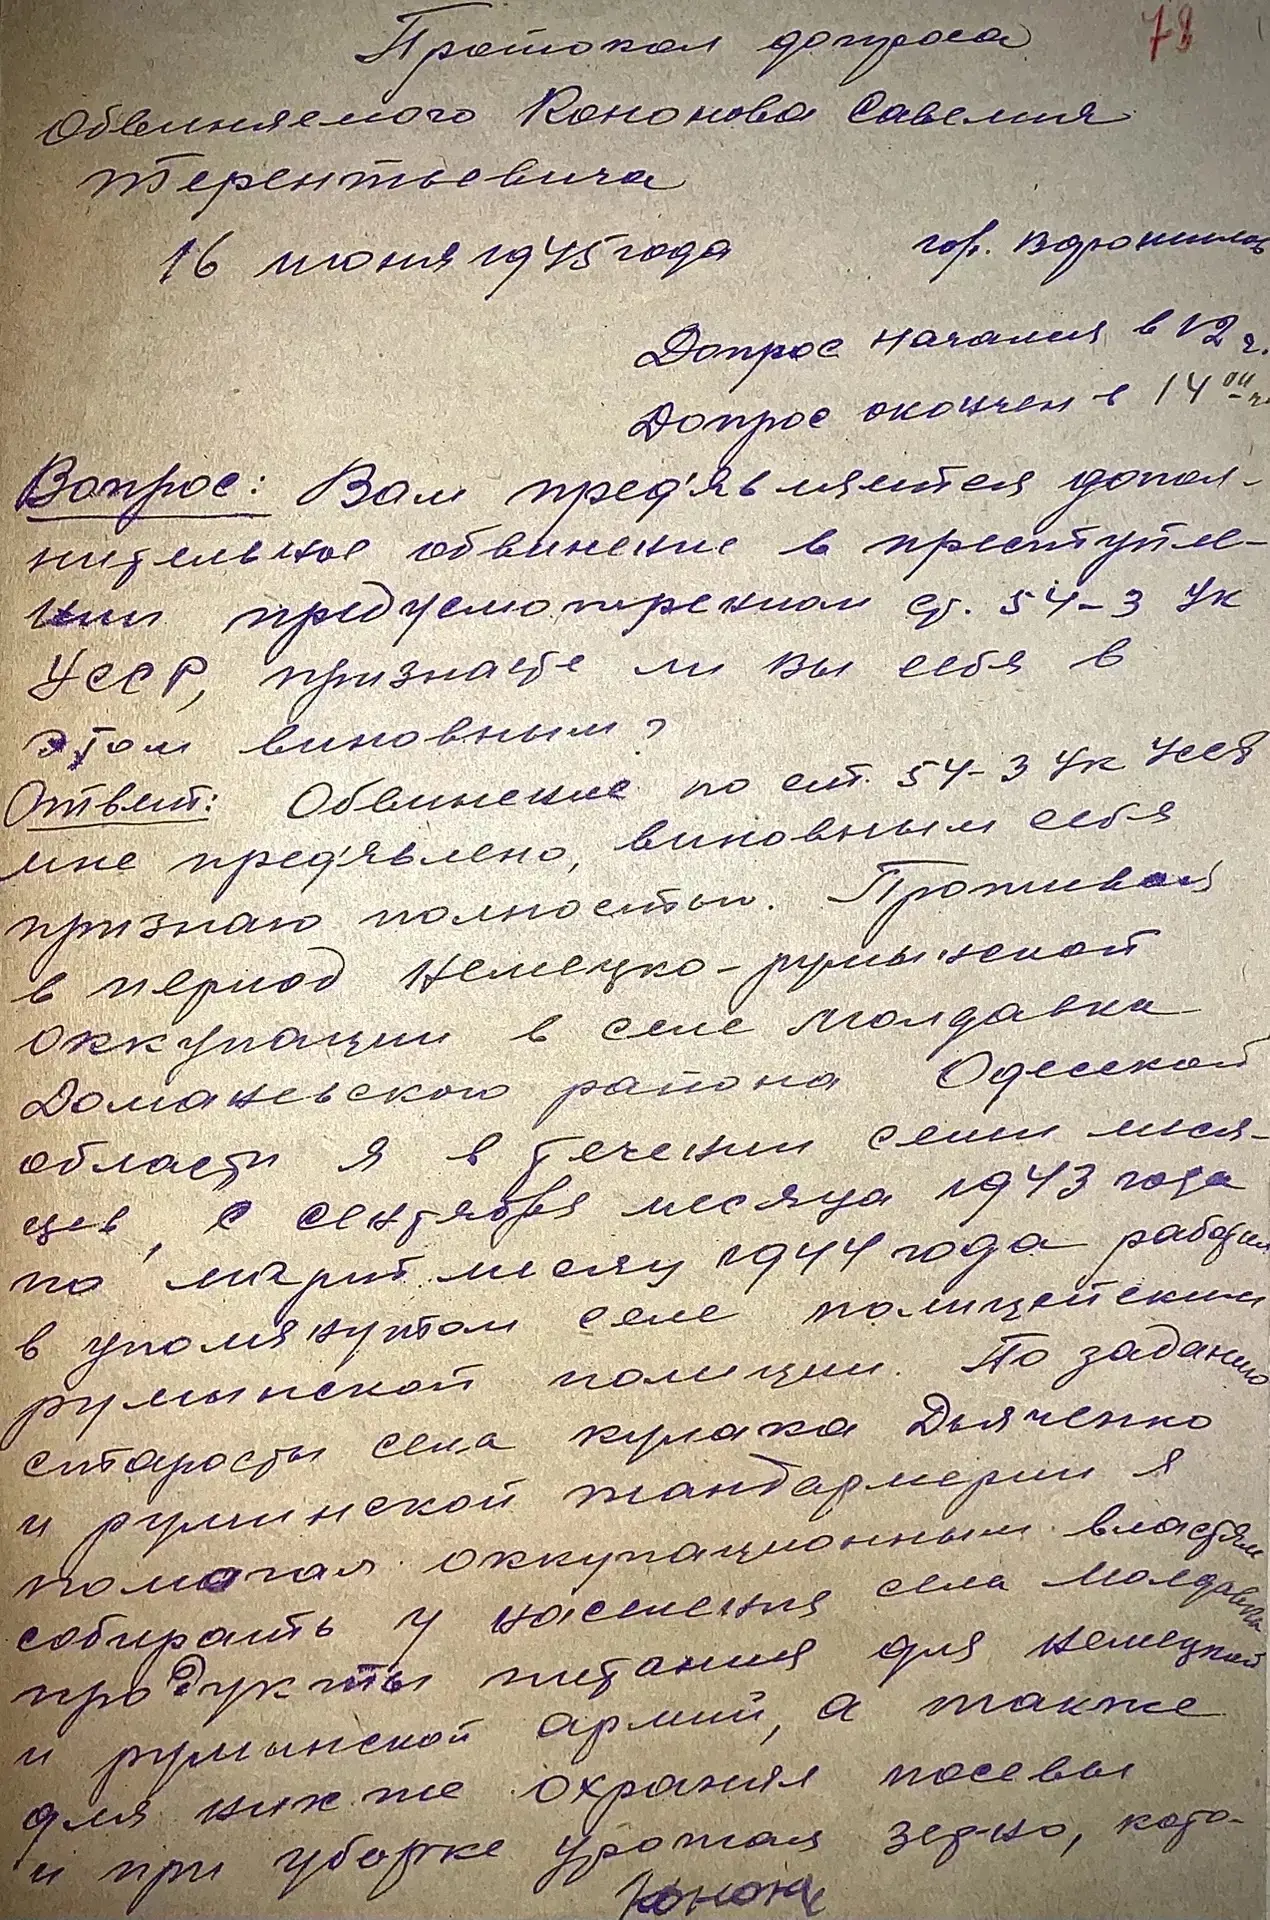 78
Протокол допроса
Обвиняемого Кононова Савелия
Терентьевича
16 июня 1945 года гор. Ворошилов
Допрос начался в 12 ч.
Допрос окончен в 14 00 ч.
Вопрос: Вам пред'является допол-
нительное обвинение в преступле-
нии предусмотренном ст. 54-3 Ук
УССР, признаете ли вы себя в
этом виновным?
Ответ: Обвинение по ст. 54-3 Ук УССР
мне пред'явлено, виновным себя
признаю полностью. Проживая
в период немецко-румынской
оккупации в селе Молдавка
Доманевского района Одесской
области я в течении семи меся-
цев, с сентября месяца 1943 года
по март месяц 1944 года работал
в упомянутом селе полицейским
румынской полиции. По заданию
старосты села кулака Дьяченко
и руминской жандармерии я
помогал оккупационным властям
собирать у населения села Молдавка
продукты питания для немецкой
и румынской армий, а также
для них же охранял посевы
и при уборке урожая зерно, кото-